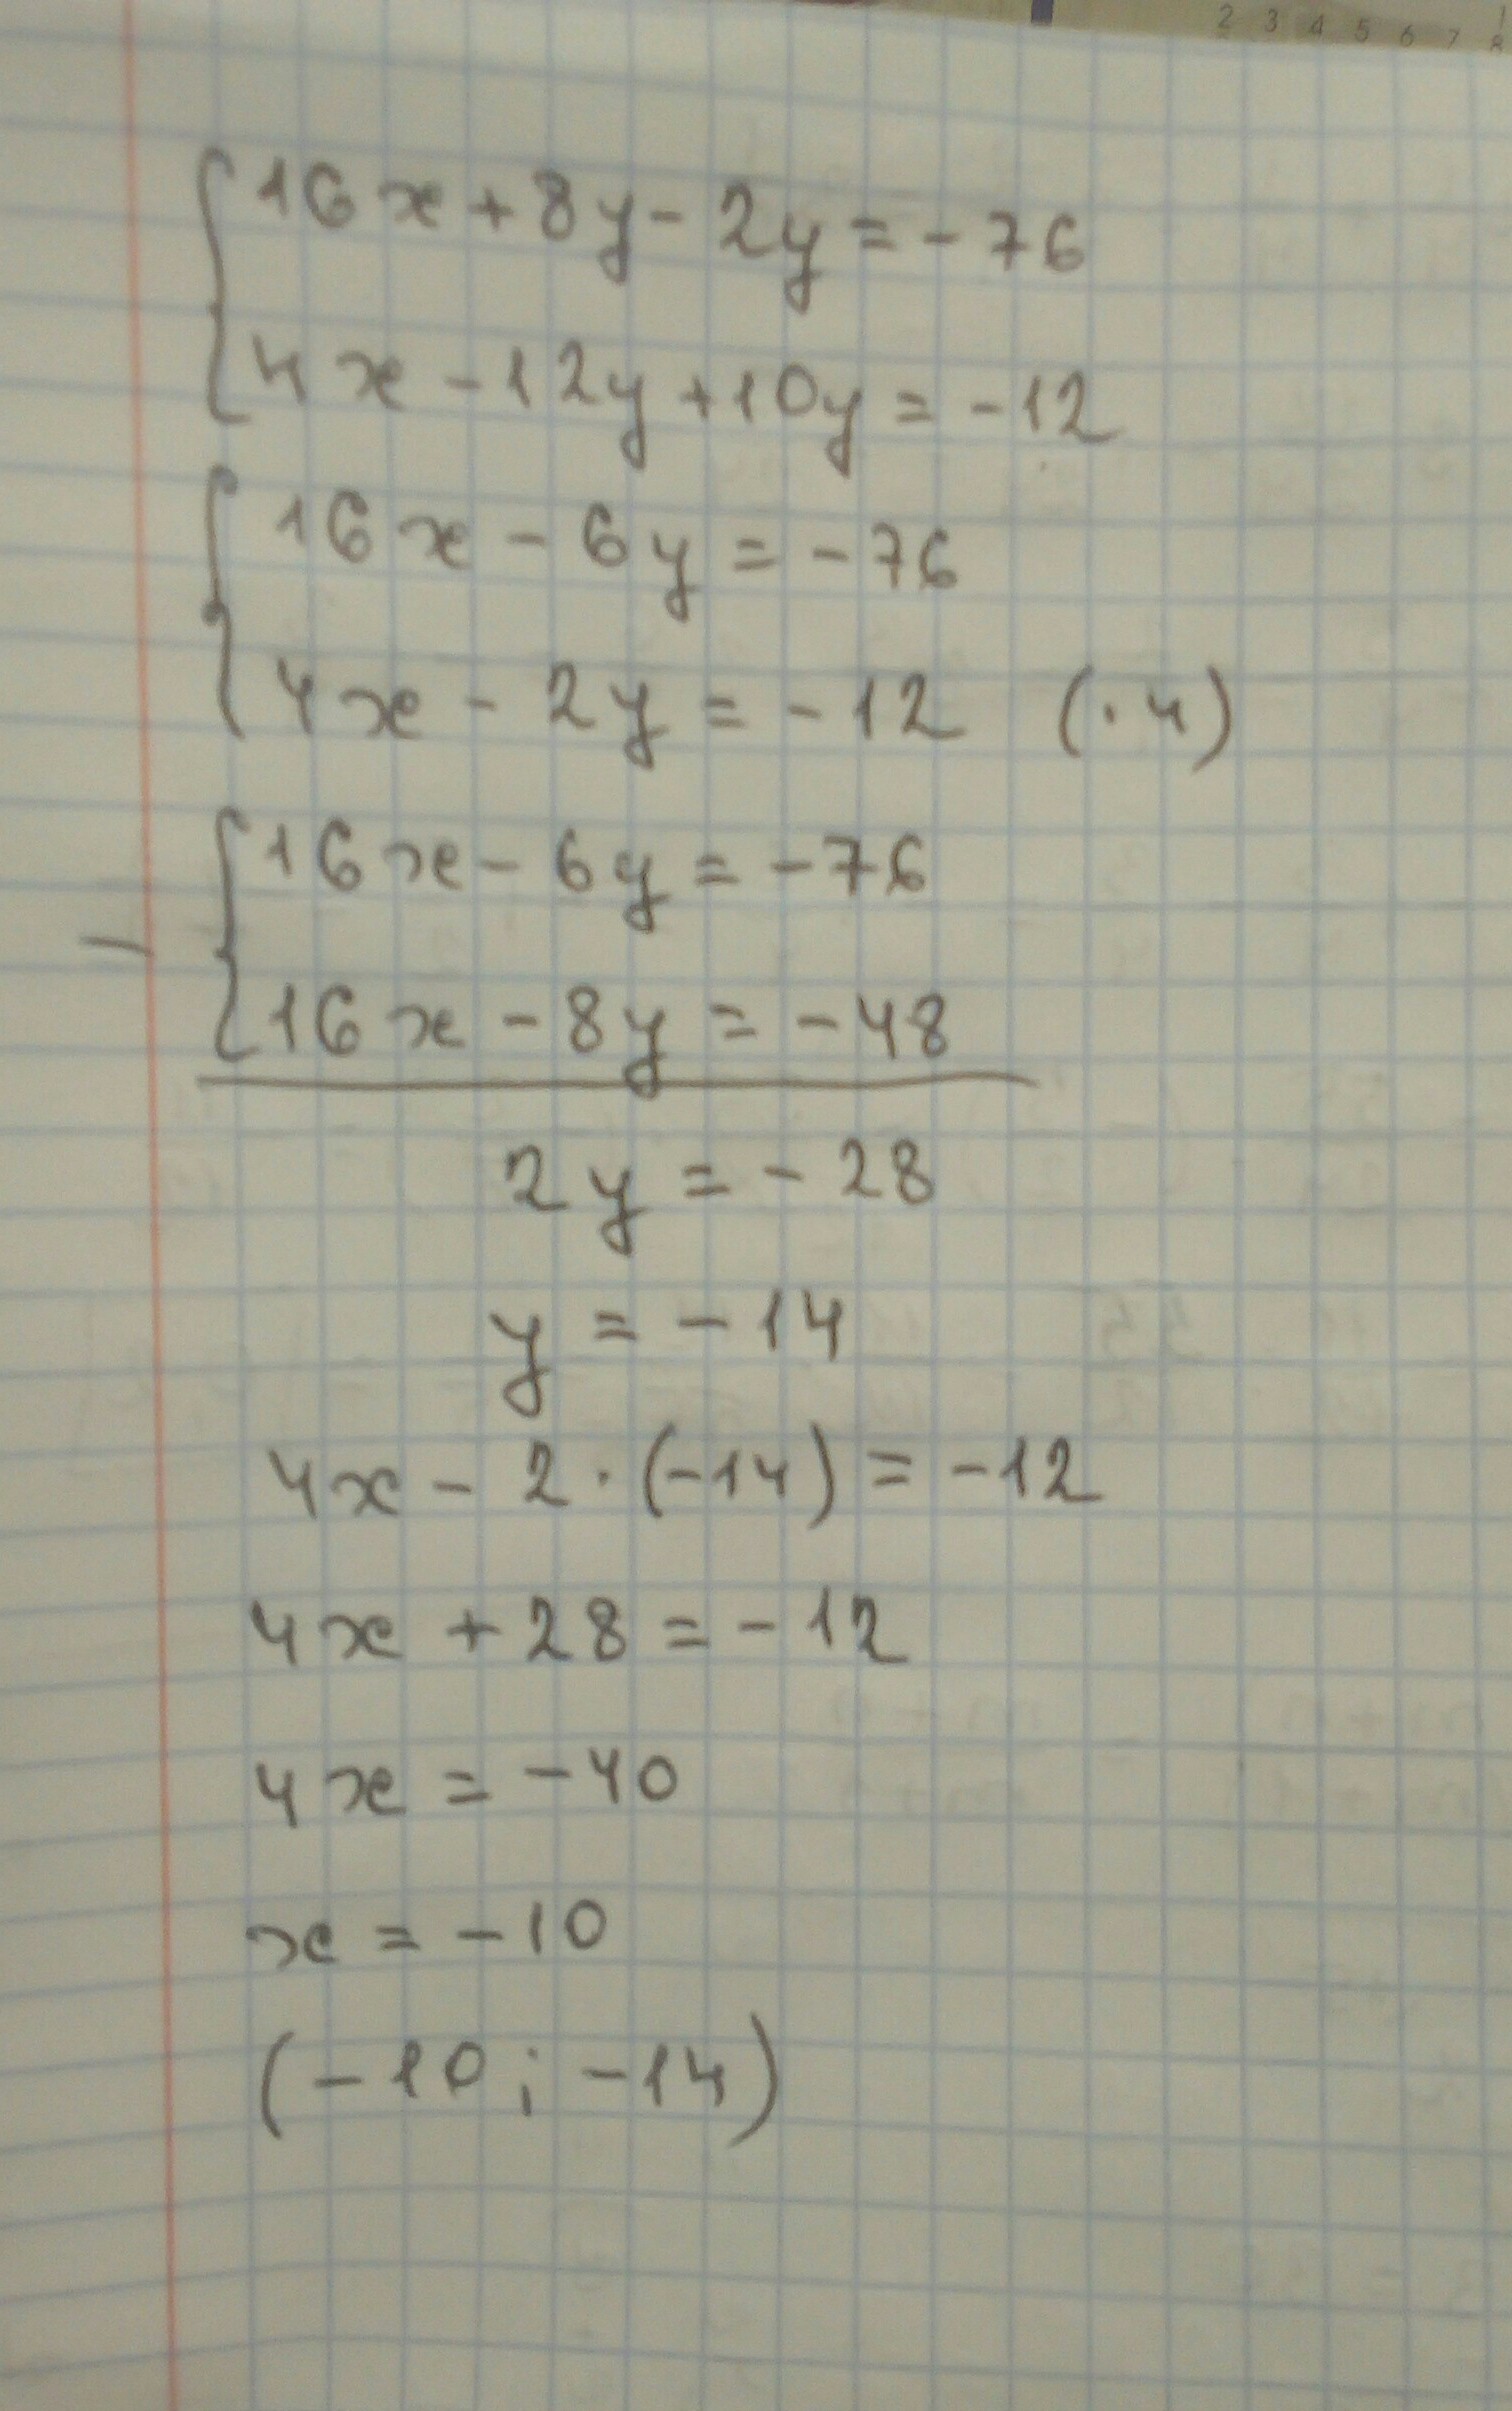 2 3 4 5 6 7 8
16x + 8y - 2y = - 76
4x - 12y + 10y = - 12
16x - 6y = - 76
4x - 2y = - 12 (· 4)
16x - 6y = - 76
-
16x - 8y = - 48
2y = - 28
y = - 14
4x - 2 · (-14) = - 12
4x + 28 = - 12
4x = - 40
x = - 10
(- 10 ; - 14)